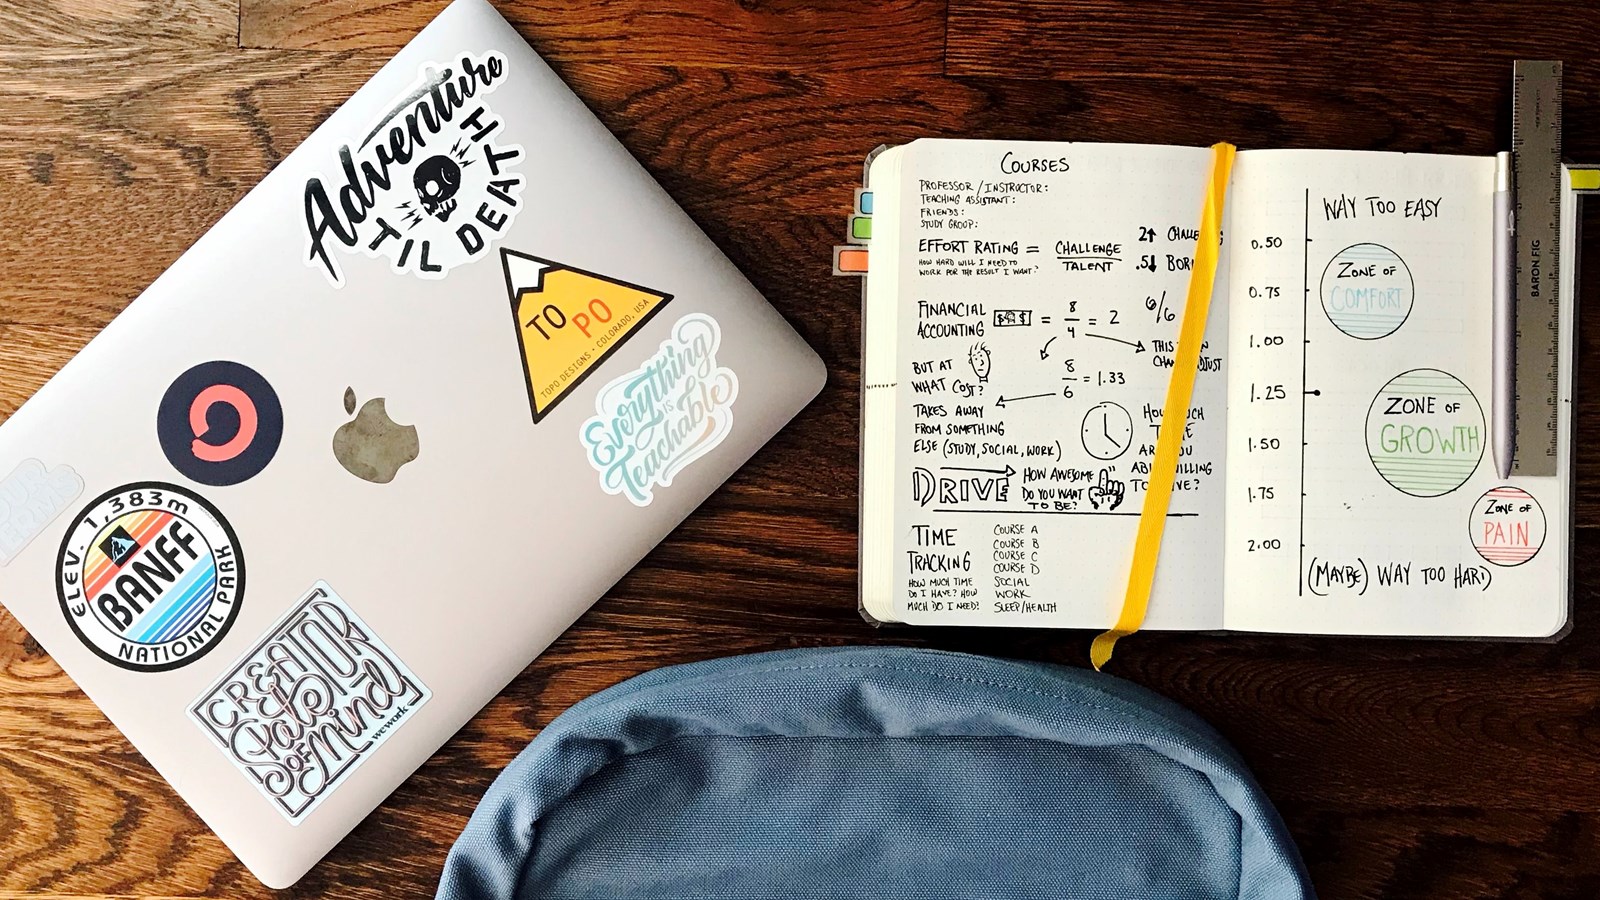 Adventure
TIL DEATH
TO PO
TOPO DESIGNS • COLORADO, USA
Everything
is
Teachable
ELEV. 1,383m
BANFF
NATIONAL PARK
CREATOR
State
OF Mind
wework
COURSES
PROFESSOR / INSTRUCTOR:
TEACHING ASSISTANT:
FRIENDS:
STUDY GROUP:
EFFORT RATING = CHALLENGE
TALENT
HOW HARD WILL I NEED TO
WORK FOR THE RESULT I WANT?
2↑
.5↓
FINANCIAL
ACCOUNTING
$ $ = 8/4 = 2
6/6
THIS
BUT AT
WHAT COST?
8/6 = 1.33
TAKES AWAY
FROM SOMETHING
ELSE (STUDY, SOCIAL, WORK)
DRIVE
HOW AWESOME
DO YOU WANT
TO BE?
TIME
TRACKING
HOW MUCH TIME
DO I HAVE? HOW
MUCH DO I NEED?
COURSE A
COURSE B
COURSE C
COURSE D
SOCIAL
WORK
SLEEP/HEALTH
WAY TOO EASY
0.50
ZONE OF
COMFORT
0.75
1.00
1.25
ZONE OF
GROWTH
1.50
1.75
ZONE OF
PAIN
2.00
(MAYBE) WAY TOO HARD
BARON FIG